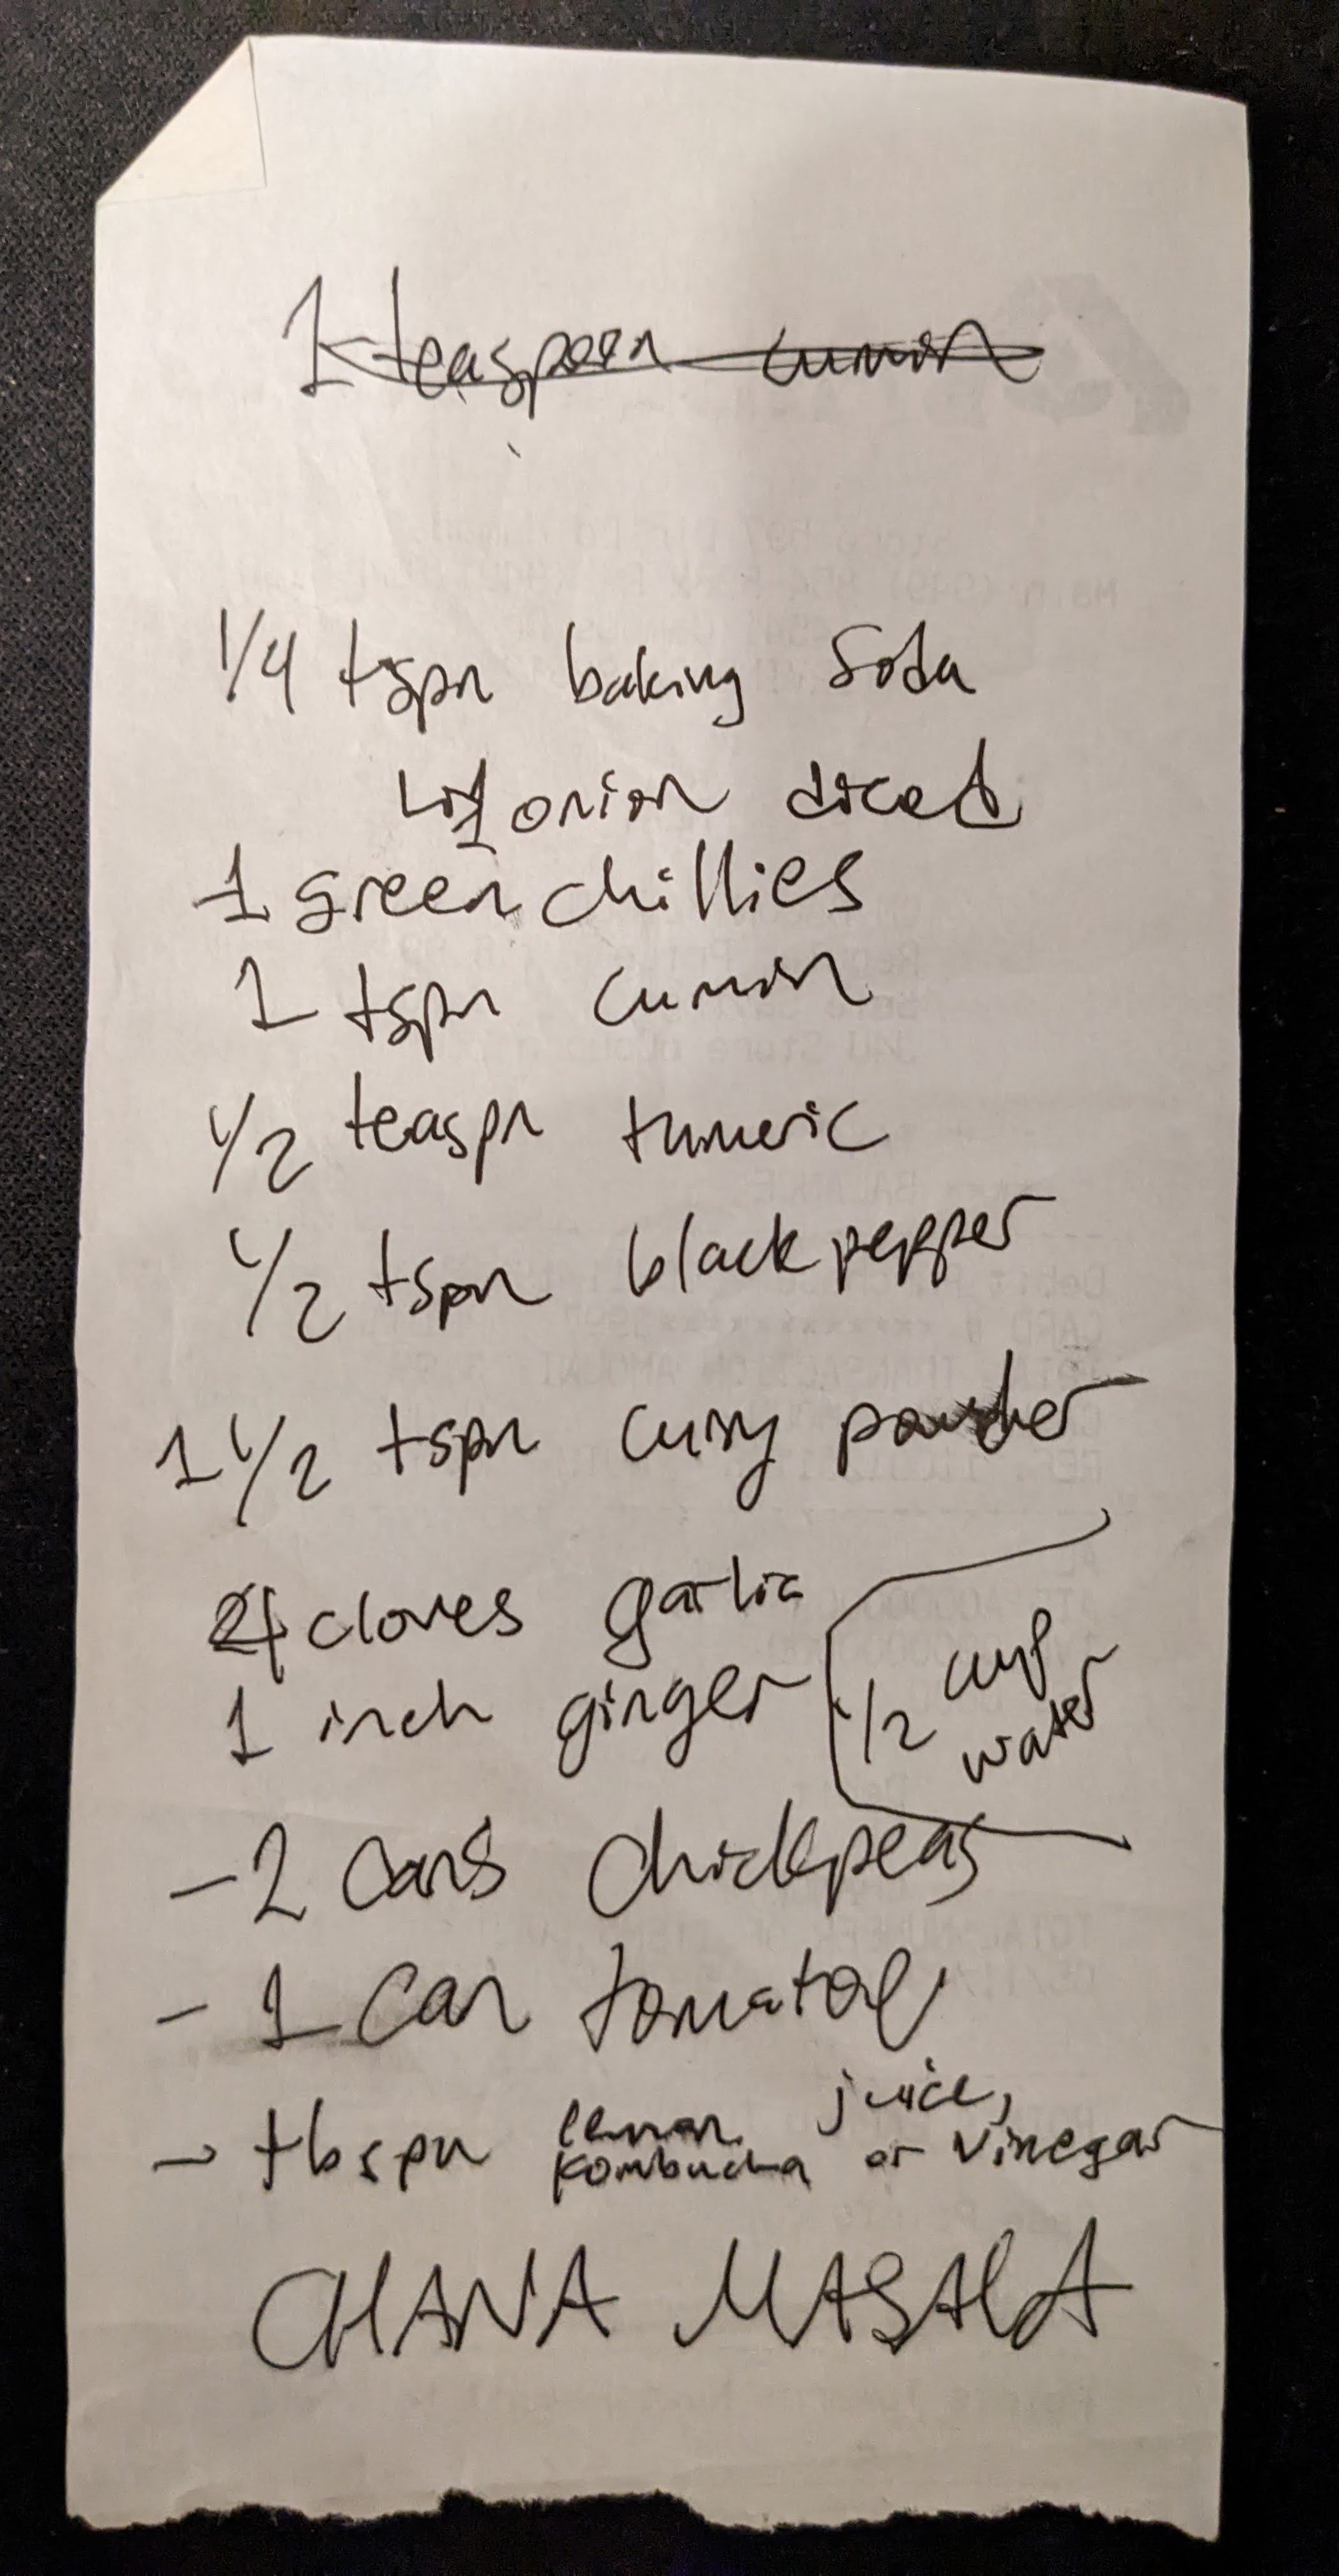 1 teaspoon cumin
1/4 tspn baking soda
1 onion diced
1 green chillies
1 tspn cumin
1/2 teaspn tumeric
1/2 tspn black pepper
1 1/2 tspn curry powder
4 cloves garlic
1 inch ginger
1/2 cup
water
- 2 cans chickpeas
- 1 can tomatoe
- tbspn lemon juice,
kombucha or vinegar
CHANA MASALA